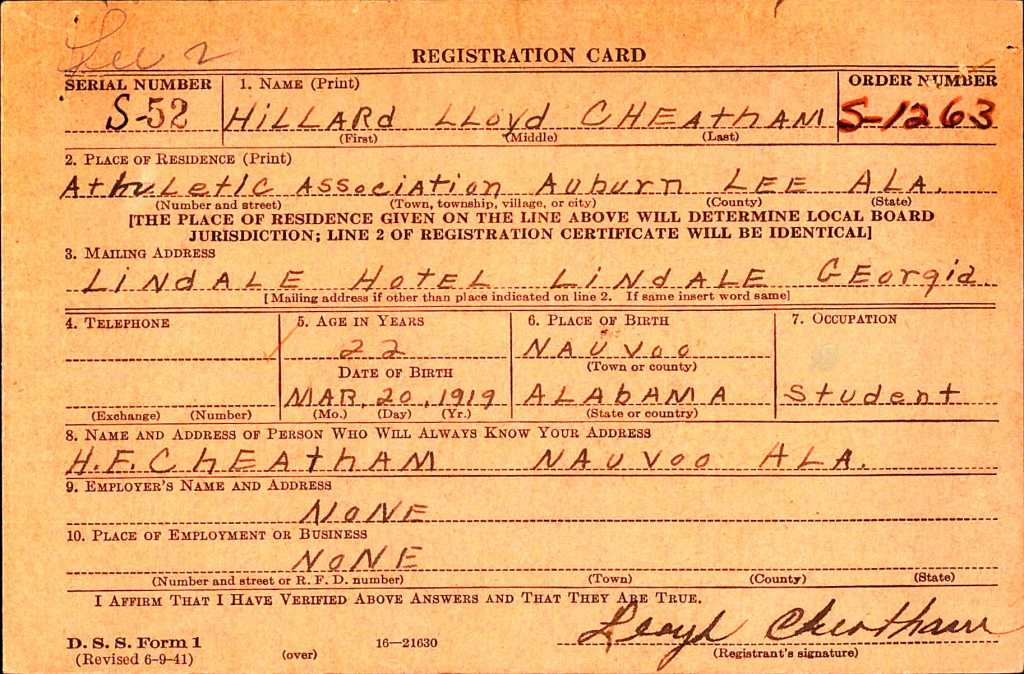 Lee 2
REGISTRATION CARD
SERIAL NUMBER 1. NAME (Print) ORDER NUMBER
S-52 HILLARd LLoyd CHEathAM S-1263
(First) (Middle) (Last)
2. PLACE OF RESIDENCE (Print)
AthLetIC ASSociAtion AuburN LEE ALA.
(Number and street) (Town, township, village, or city) (County) (State)
[THE PLACE OF RESIDENCE GIVEN ON THE LINE ABOVE WILL DETERMINE LOCAL BOARD
JURISDICTION; LINE 2 OF REGISTRATION CERTIFICATE WILL BE IDENTICAL]
3. MAILING ADDRESS
LiNdALE HotEL LiNdALE GEorgia.
[Mailing address if other than place indicated on line 2. If same insert word same]
4. TELEPHONE 5. AGE IN YEARS 6. PLACE OF BIRTH 7. OCCUPATION
22 NAUVoo
DATE OF BIRTH (Town or county)
MAR. 20, 1919 ALAbAMA Student
(Exchange) (Number) (Mo.) (Day) (Yr.) (State or country)
8. NAME AND ADDRESS OF PERSON WHO WILL ALWAYS KNOW YOUR ADDRESS
H.F. ChEAthAM NAUVoo ALA.
9. EMPLOYER'S NAME AND ADDRESS
NoNE
10. PLACE OF EMPLOYMENT OR BUSINESS
NoNE
(Number and street or R. F. D. number) (Town) (County) (State)
I AFFIRM THAT I HAVE VERIFIED ABOVE ANSWERS AND THAT THEY ARE TRUE.
Lloyd Cheatham
D. S. S. Form 1 16—21630
(Revised 6-9-41) (over) (Registrant's signature)